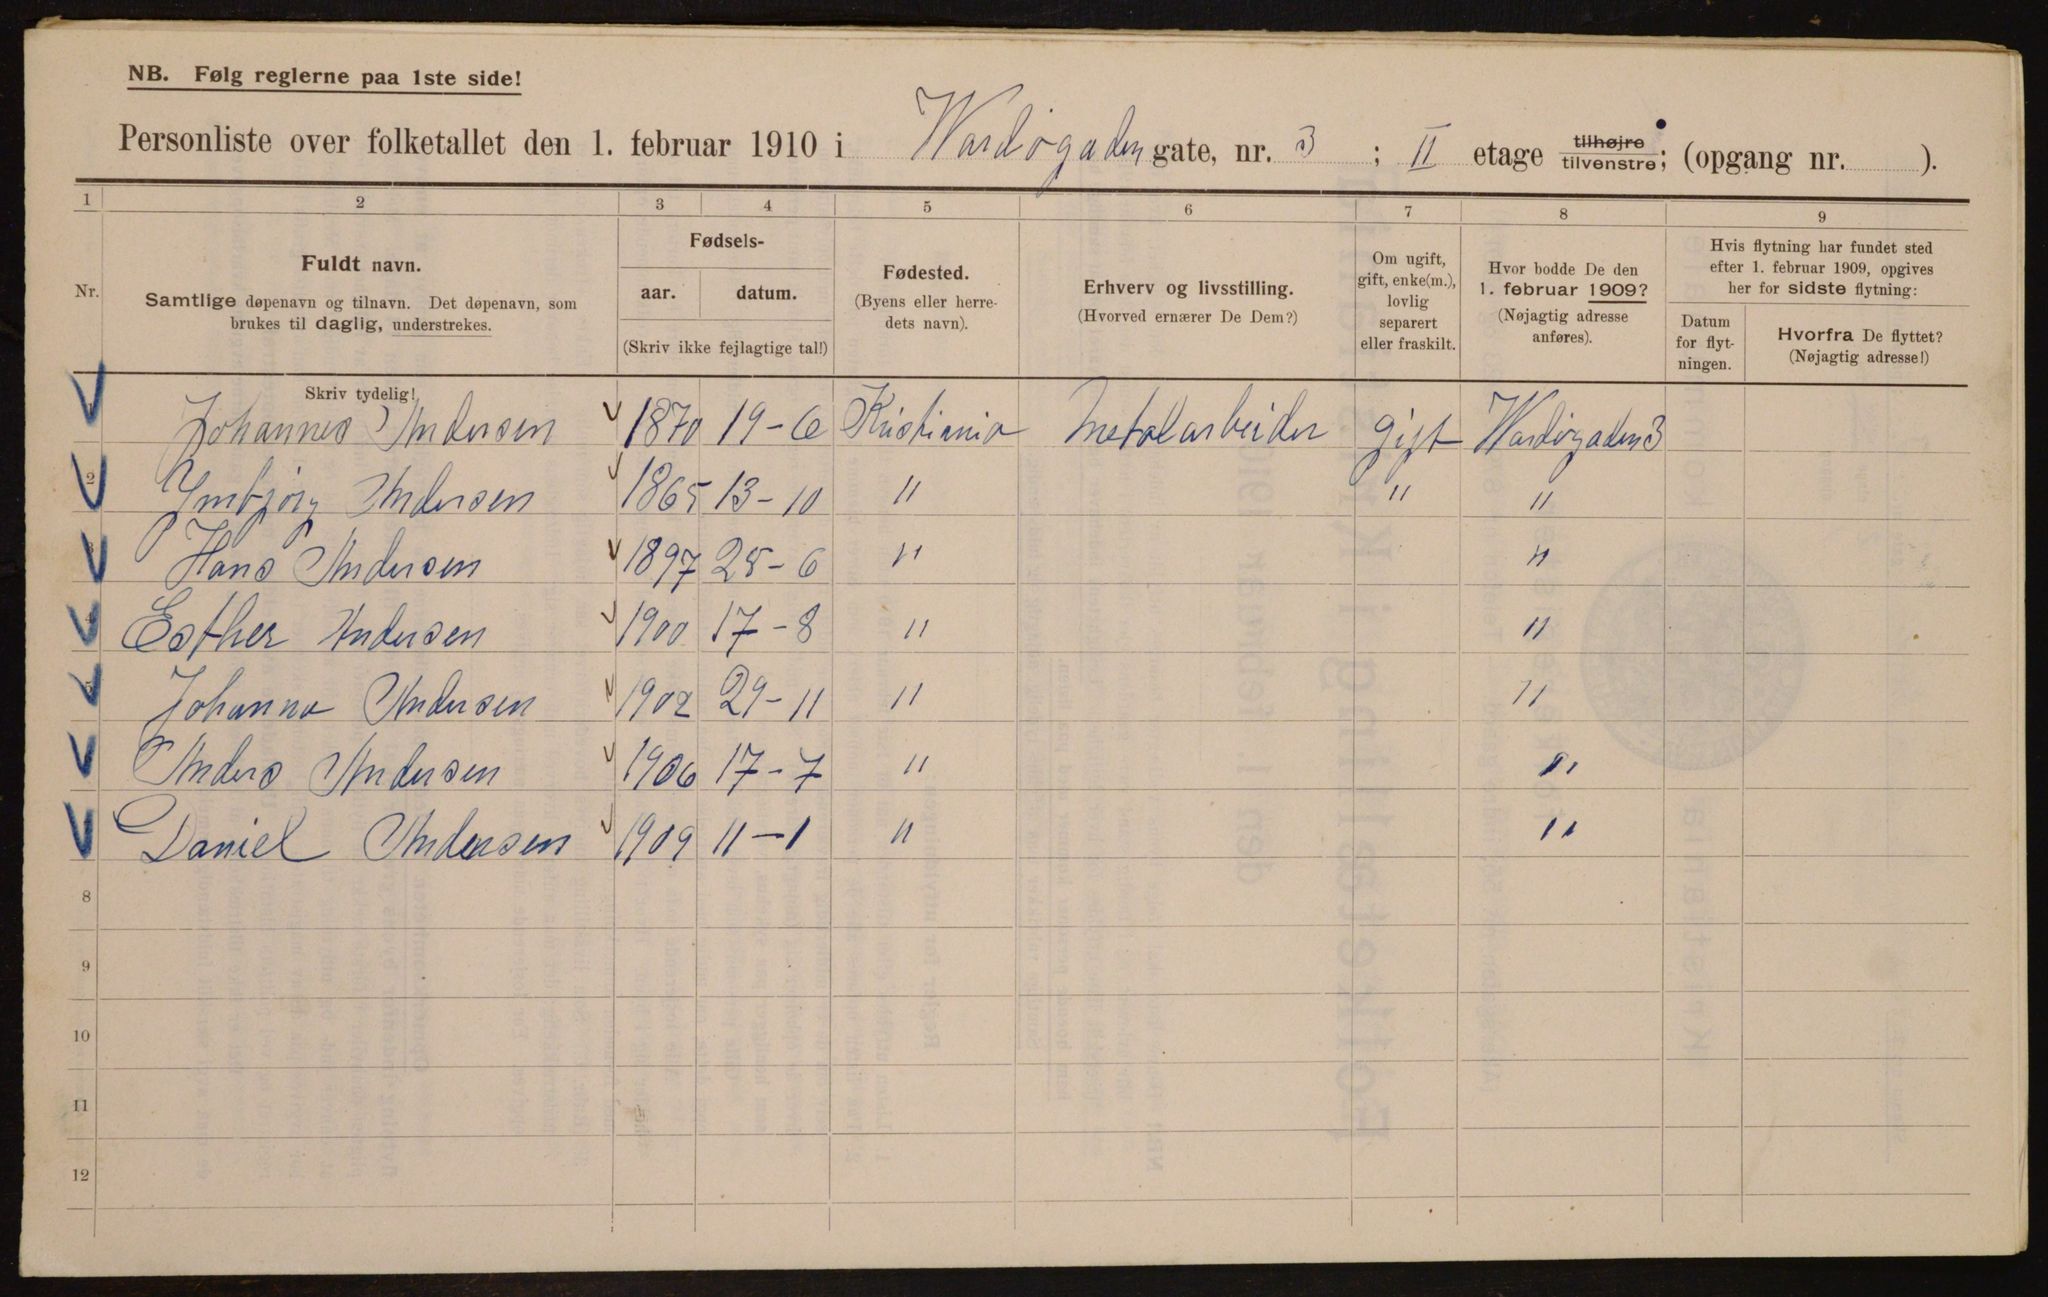 NB. Følg reglerne paa 1ste side!
Personliste over folketallet den 1. februar 1910 i Wardøgaden gate, nr. 3 ; II etage tilhøjre tilvenstre; (opgang nr. ).
1 2 3 4 5 6 7 8 9
Nr.
Fuldt navn.
Samtlige døpenavn og tilnavn. Det døpenavn, som
brukes til daglig, understrekes.
Fødsels-
aar. datum.
(Skriv ikke fejlagtige tal!)
Fødested.
(Byens eller herre-
dets navn).
Erhverv og livsstilling.
(Hvorved ernærer De Dem?)
Om ugift,
gift, enke(m.),
lovlig
separert
eller fraskilt.
Hvor bodde De den
1. februar 1909?
(Nøjagtig adresse
anføres).
Hvis flytning har fundet sted
efter 1. februar 1909, opgives
her for sidste flytning:
Datum
for flyt-
ningen.
Hvorfra De flyttet?
(Nøjagtig adresse!)
Skriv tydelig!
Johannes Andersen 1870 19-6 Kristiania Metalarbeider gift Wardøgaden 3
2 Ymbjørg Andersen 1865 13-10 " " "
3 Hans Andersen 1897 25-6 " "
4 Esther Andersen 1900 17-8 " "
5 Johanna Andersen 1902 29-11 " "
Anders Andersen 1906 17-7 " "
Daniel Andersen 1909 11-1 " "
8
9
10
11
12